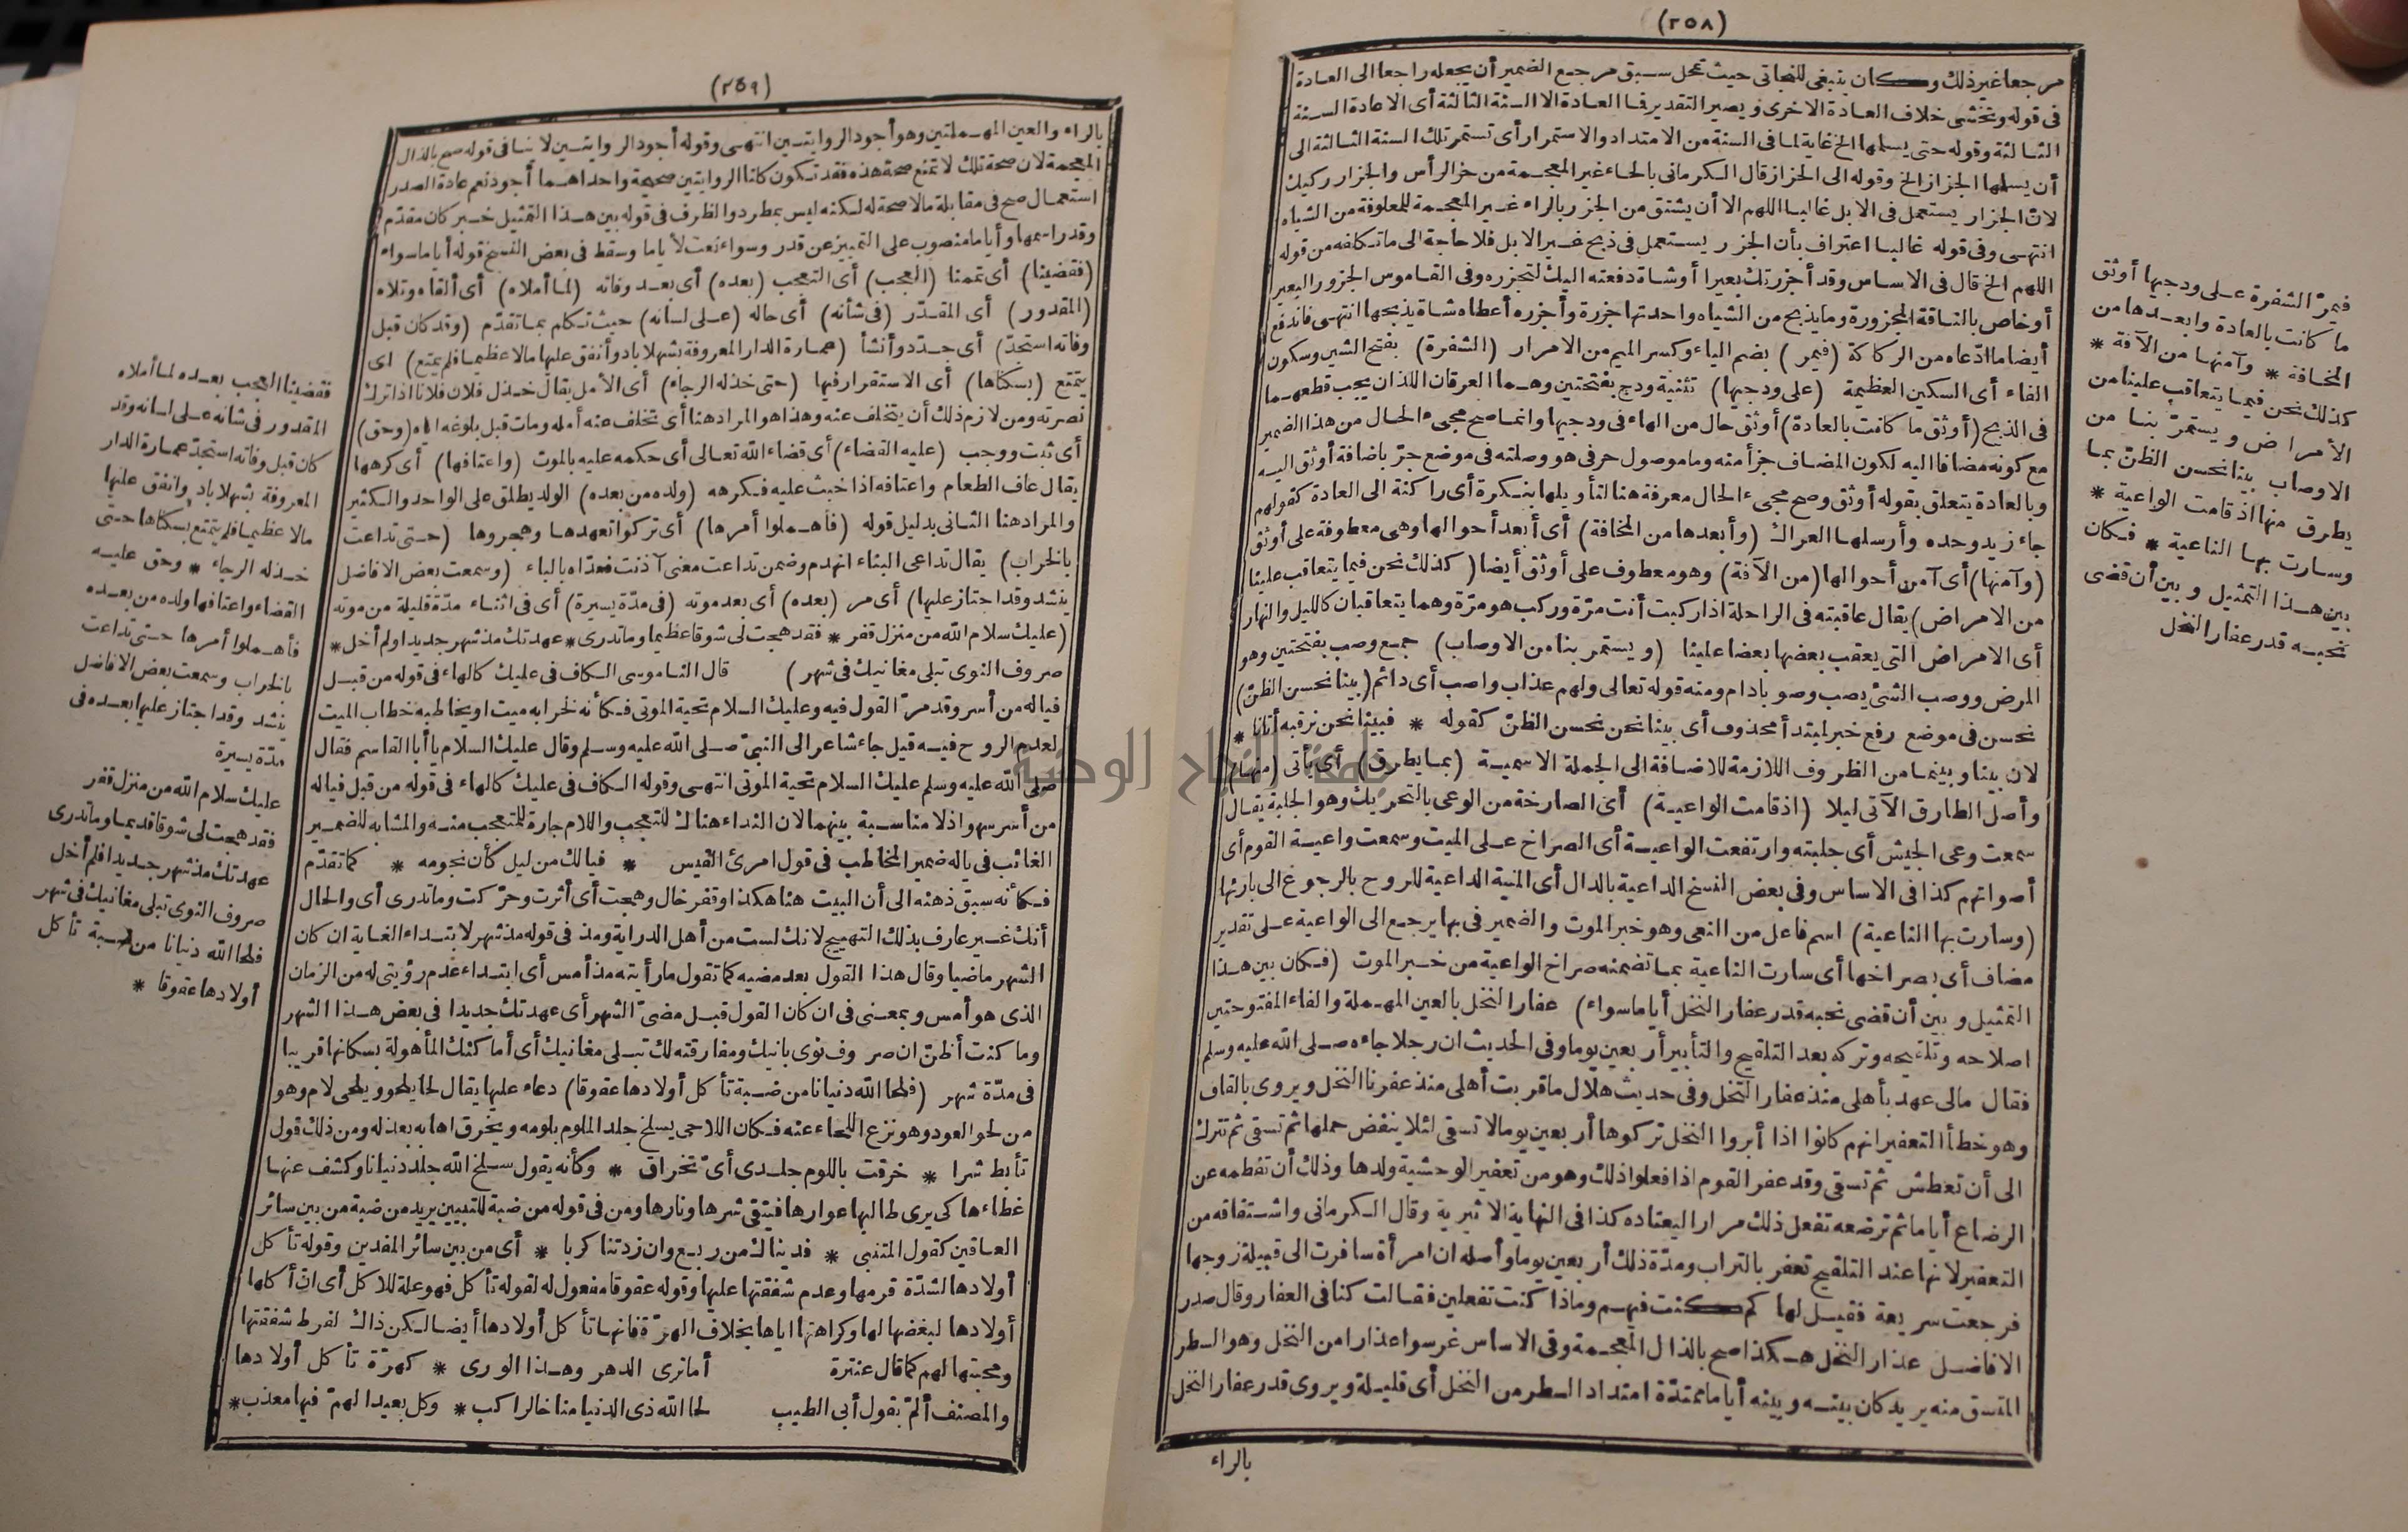 (٢٥٨)
مرجعا غير ذلك وكان ينبغي للنجاتي حيث تمحل سبق مرجع الضمير أن يجعله راجعا الى العادة
في قوله وتخشى خلاف العادة الاخرى ويصير التقدير فما العادة الا السنة الثالثة أى الا عادة السنة
الثالثة وقوله حتى يسلمها الخ غاية لما في السنة من الامتداد والاستمرار أى تستمر تلك السنة الثالثة الى
أن يسلمها الجزاز الخ وقوله الى الجزاز قال الكرماني بالحاء غير المعجمة من حز الرأس والجزار ركيك
لان الجزار يستعمل في الابل غالبا اللهم الا أن يشتق من الجزر بالراء غير المعجمة للمعلوفة من الشياه
انتهى وفي قوله غالبا اعتراف بأن الجزر يستعمل في ذبح غير الابل فلا حاجة الى ما تكلفه من قوله
اللهم الخ قال في الاساس وقد أجزرتك بعيرا أو شاة دفعته اليك لتجزره وفي القاموس الجزور البعير
أو خاص بالناقة المجزورة وما يذبح من الشياه واحدتها جزرة وأجزره أعطاه شاة يذبحها انتهى فاندفع
أيضا ما ادّعاه من الركاكة (فيمر) بضم الياء وكسر الميم من الامرار (الشفرة) بفتح الشين وسكون
الفاء أى السكين العظيمة (على ودجيها) تثنية ودج بفتحتين وهما العرقان اللذان يجب قطعهما
في الذبح (أوثق ما كانت بالعادة) أوثق حال من الهاء في ودجيها وانما صح مجيء الحال من هذا الضمير
مع كونه مضافا اليه لكون المضاف جزأ منه وما موصول حرفي هو وصلته في موضع جرّ باضافة أوثق اليه
وبالعادة يتعلق بقوله أوثق وصح مجيء الحال معرفة هنا لتأويلها بنكرة أى راكنة الى العادة كقولهم
جاء زيد وحده وأرسلها العراك (وأبعدها من المخافة) أى أبعد أحوالها وهى معطوفة على أوثق
(وآمنها) أى آمن أحوالها (من الآفة) وهو معطوف على أوثق أيضا (كذلك نحن فيما يتعاقب علينا
من الامراض) يقال عاقبته في الراحلة اذا ركبت أنت مرّة وركب هو مرّة وهما يتعاقبان كالليل والنهار
أى الامراض التي يعقب بعضها بعضا علينا (ويستمر بنا من الاوصاب) جمع وصب بفتحتين وهو
المرض ووصب الشئ يصب وصوبا دام ومنه قوله تعالى ولهم عذاب واصب أى دائم (بينا نحسن الظنّ)
نحسن في موضع رفع خبر لمبتدأ محذوف أى بينا نحن نحسن الظنّ كقوله * فبينا نحن نرقبه أتانا *
لان بينا وبينما من الظروف اللازمة للاضافة الى الجملة الاسمية (بما يطرق) أى يأتي (منها)
وأصل الطارق الآتى ليلا (اذ قامت الواعية) أى الصارخة من الوعى بالتحريك وهو الجلبة يقال
سمعت وعى الجيش أى جلبته وارتفعت الواعية أى الصراخ على الميت وسمعت واعية القوم أى
أصواتهم كذا في الاساس وفي بعض النسخ الداعية بالدال أى المنية الداعية للروح بالرجوع الى بارئها
(وسارت بها الناعية) اسم فاعل من النعى وهو خبر الموت والضمير في بها يرجع الى الواعية على تقدير
مضاف أى بصراخها أى سارت الناعية بما تضمنه صراخ الواعية من خبر الموت (فكان بين هذا
التمثيل وبين أن قضى نحبه قدر عفار النخل أياما سواء) عفار النخل بالعين المهملة والفاء المفتوحتين
اصلاحه وتلقيحه وتركه بعد التلقيح والتأبير أربعين يوما وفي الحديث ان رجلا جاءه صلى الله عليه وسلم
فقال مالى عهد بأهلى منذ عفار النخل وفي حديث هلال ما قربت أهلى منذ عفرنا النخل ويروى بالقاف
وهو خطأ التعفير انهم كانوا اذا أبروا النخل تركوها أربعين يوما لا تسقى لئلا ينفض حملها ثم تسقى ثم تترك
الى أن تعطش ثم تسقى وقد عفر القوم اذا فعلوا ذلك وهو من تعفير الوحشية ولدها وذلك أن تفطمه عن
الرضاع أياما ثم ترضعه تفعل ذلك مرارا ليعتاده كذا في النهاية الاثيرية وقال الكرماني واشتقاقه من
التعفير لانها عند التلقيح تعفر بالتراب ومدّة ذلك أربعين يوما وأصله ان امرأة سافرت الى قبيلة زوجها
فرجعت سريعة فقيل لها كم كنت فيهم وماذا كنت تفعلين فقالت كنا في العفار وقال صدر
الافاضل عذار النخل هكذا صح بالذال المعجمة وفي الاساس غرسوا عذارا من النخل وهو السطر
المتسق منه يريد كان بينه وبينه أياما ممتدّة امتداد السطر من النخل أى قليلة ويروى قدر عفار النخل
بالراء
فيمرّ الشفرة على ودجيها أوثق
ما كانت بالعادة وابعدها من
المخافة * وآمنها من الآفة *
كذلك نحن فيما يتعاقب علينا من
الأمراض ويستمرّ بنا من
الاوصاب بينا نحسن الظنّ بما
يطرق منها اذ قامت الواعية *
وسارت بها الناعية * فكان
بين هذا التمثيل وبين أن قضى
نحبه قدر عفار النخل
(٢٥٩)
بالراء والعين المهملتين وهو أجود الروايتين انتهى وقوله أجود الروايتين لا ينافي قوله صح بالذال
المعجمة لان صحة تلك لا تمنع صحة هذه فقد تكون كلتا الروايتين صحيحة واحداهما أجود نعم عادة الصدر
استعمال صح في مقابلة مالا صحة له لكنه ليس بمطرد والظرف في قوله بين هذا التمثيل خبر كان مقدّم
وقدر اسمها وأياما منصوب على التمييز عن قدر وسواء نعت لأياما وسقط في بعض النسخ قوله أياما سواء
(فقضينا) أى تممنا (العجب) أى التعجب (بعده) أى بعد وفاته (لما أملاه) أى ألقاه وتلاه
(المقدور) أى المقدّر (في شأنه) أى حاله (على لسانه) حيث تكلم بما تقدّم (وقد كان قبل
وفاته استجدّ) أى جدّد وأنشأ (عمارة الدار المعروفة بشهلاباد وأنفق عليها مالا عظيما فلم يمتع) أى
يتمتع (بسكناها) أى الاستقرار فيها (حتى خذله الرجاء) أى الأمل يقال خذل فلان فلانا اذا ترك
نصرته ومن لازم ذلك أن يتخلف عنه وهذا هو المراد هنا أى تخلف عنه أمله ومات قبل بلوغه اياه (وحق)
أى ثبت ووجب (عليه القضاء) أى قضاء الله تعالى أى حكمه عليه بالموت (واعتافها) أى كرهها
يقال عاف الطعام واعتافه اذا خبث عليه فكرهه (ولده من بعده) الولد يطلق على الواحد والكثير
والمراد هنا الثاني بدليل قوله (فأهملوا أمرها) أى تركوا تعهدها وهجروها (حتى تداعت
بالخراب) يقال تداعى البناء انهدم وضمن تداعت معنى آذنت فعدّاه بالباء (وسمعت بعض الافاضل
ينشد وقد اجتاز عليها) أى مر (بعده) أى بعد موته (في مدّة يسيرة) أى في اثناء مدّة قليلة من موته
(عليك سلام الله من منزل قفر * فقد هجت لى شوقا عظيما وما تدرى * عهدتك مذ شهر جديدا ولم أخل *
صروف النوى تبلى مغانيك في شهر) قال الناموسى الكاف في عليك كالهاء في قوله من قبل
فياله من أسر وقد مرّ القول فيه وعليك السلام تحية الموتى فكأنه لخرابه ميت او يخاطبه خطاب الميت
لعدم الروح فيه قيل جاء شاعر الى النبيّ صلى الله عليه وسلم وقال عليك السلام يا أبا القاسم فقال
صلى الله عليه وسلم عليك السلام تحية الموتى انتهى وقوله الكاف في عليك كالهاء في قوله من قبل فياله
من أسر سهو اذ لا مناسبة بينهما لان النداء هناك للتعجب واللام جارة للمتعجب منه والمشابه للضمير
الغائب في ياله ضمير المخاطب في قول امرئ القيس * فيالك من ليل كأن نجومه * كما تقدّم
فكأنه سبق ذهنه الى أن البيت هنا هكذا وقفر خال وهجت أى أثرت وحرّكت وما تدرى أى والحال
أنك غير عارف بذلك التهييج لانك لست من أهل الدراية ومذ في قوله مذ شهر لابتداء الغاية ان كان
الشهر ماضيا وقال هذا القول بعد مضيه كما تقول ما رأيته مذ أمس أى ابتداء عدم رؤيتى له من الزمان
الذى هو أمس وبمعنى في ان كان القول قبل مضىّ الشهر أى عهدتك جديدا في بعض هذا الشهر
وما كنت أظنّ ان صروف نوى بانيك ومفارقته لك تبلى مغانيك أى أماكنك المأهولة بسكانها قريبا
في مدّة شهر (فلحا الله دنيانا من ضبة تأكل أولادها عقوقا) دعاء عليها يقال لحا يلحو ويلحى لام وهو
من لحو العود وهو نزع اللحاء عنه فكان اللاحى يسلخ جلد الملوم بلومه ويخرق اهابه بعذله ومن ذلك قول
تأبط شرا * خرقت باللوم جلدى أىّ تخراق * وكأنه يقول سلخ الله جلد دنيانا وكشف عنها
غطاءها كى يرى طالبها عوارها فيتقى شرها ونارها ومن في قوله من ضبة للتبيين يريد من ضبة من بين سائر
العاقين كقول المتنبى * فديناك من ربع وان زدتنا كربا * أى من بين سائر المفدين وقوله تأكل
أولادها لشدّة قرمها وعدم شفقتها عليها وقوله عقوقا مفعول له لقوله تأكل فهو علة للاكل أى انّ أكلها
أولادها لبغضها لها وكراهتها اياها بخلاف الهرّة فانها تأكل أولادها أيضا لكن ذاك لفرط شفقتها
ومحبتها لهم كما قال عنترة أما ترى الدهر وهذا الورى * كهرّة تأكل أولادها
والمصنف ألمّ بقول أبى الطيب لحا الله ذى الدنيا مناخا لراكب * وكل بعيد الهمّ فيها معذب *
فقضينا العجب بعده لما أملاه
المقدور في شانه على لسانه وقد
كان قبل وفاته استجدّ عمارة الدار
المعروفة بشهلاباد وانفق عليها
مالا عظيما فلم يتمتع بسكناها حتى
خذله الرجاء * وحق عليه
القضاء واعتافها ولده من بعده
فأهملوا أمرها حتى تداعت
بالخراب وسمعت بعض الافاضل
ينشد وقد اجتاز عليها بعده في
مدّة يسيرة
عليك سلام الله من منزل قفر
فقد هجت لى شوقا قديما وما تدرى
عهدتك مذ شهر جديدا فلم أخل
صروف النوى تبلى مغانيك في شهر
فلحا الله دنيانا من ضبة تأكل
أولادها عقوقا *
جامعة النجاح الوطنية